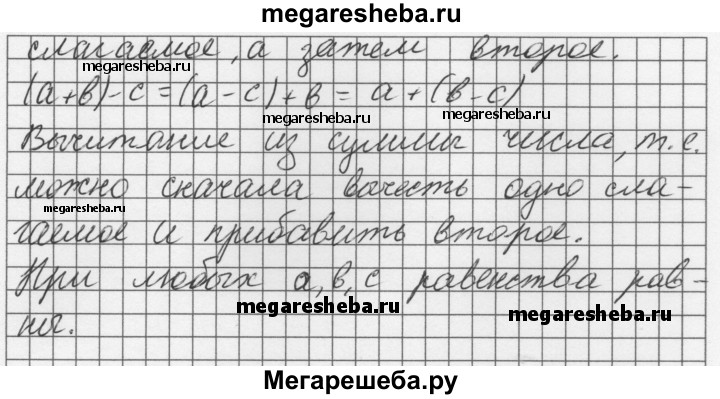 megaresheba.ru
слагаемое, а затем второе.
megaresheba.ru
(а+в)-с=(а-с)+в = а+(в-с)
megaresheba.ru megaresheba.ru
Вычитание из суммы числа, т.е.
можно сначала вычесть одно сла-
megaresheba.ru
гаемое и прибавить второе.
При любых а, в, с равенства рав-
megaresheba.ru megaresheba.ru
ны.
Мегарешеба.ру